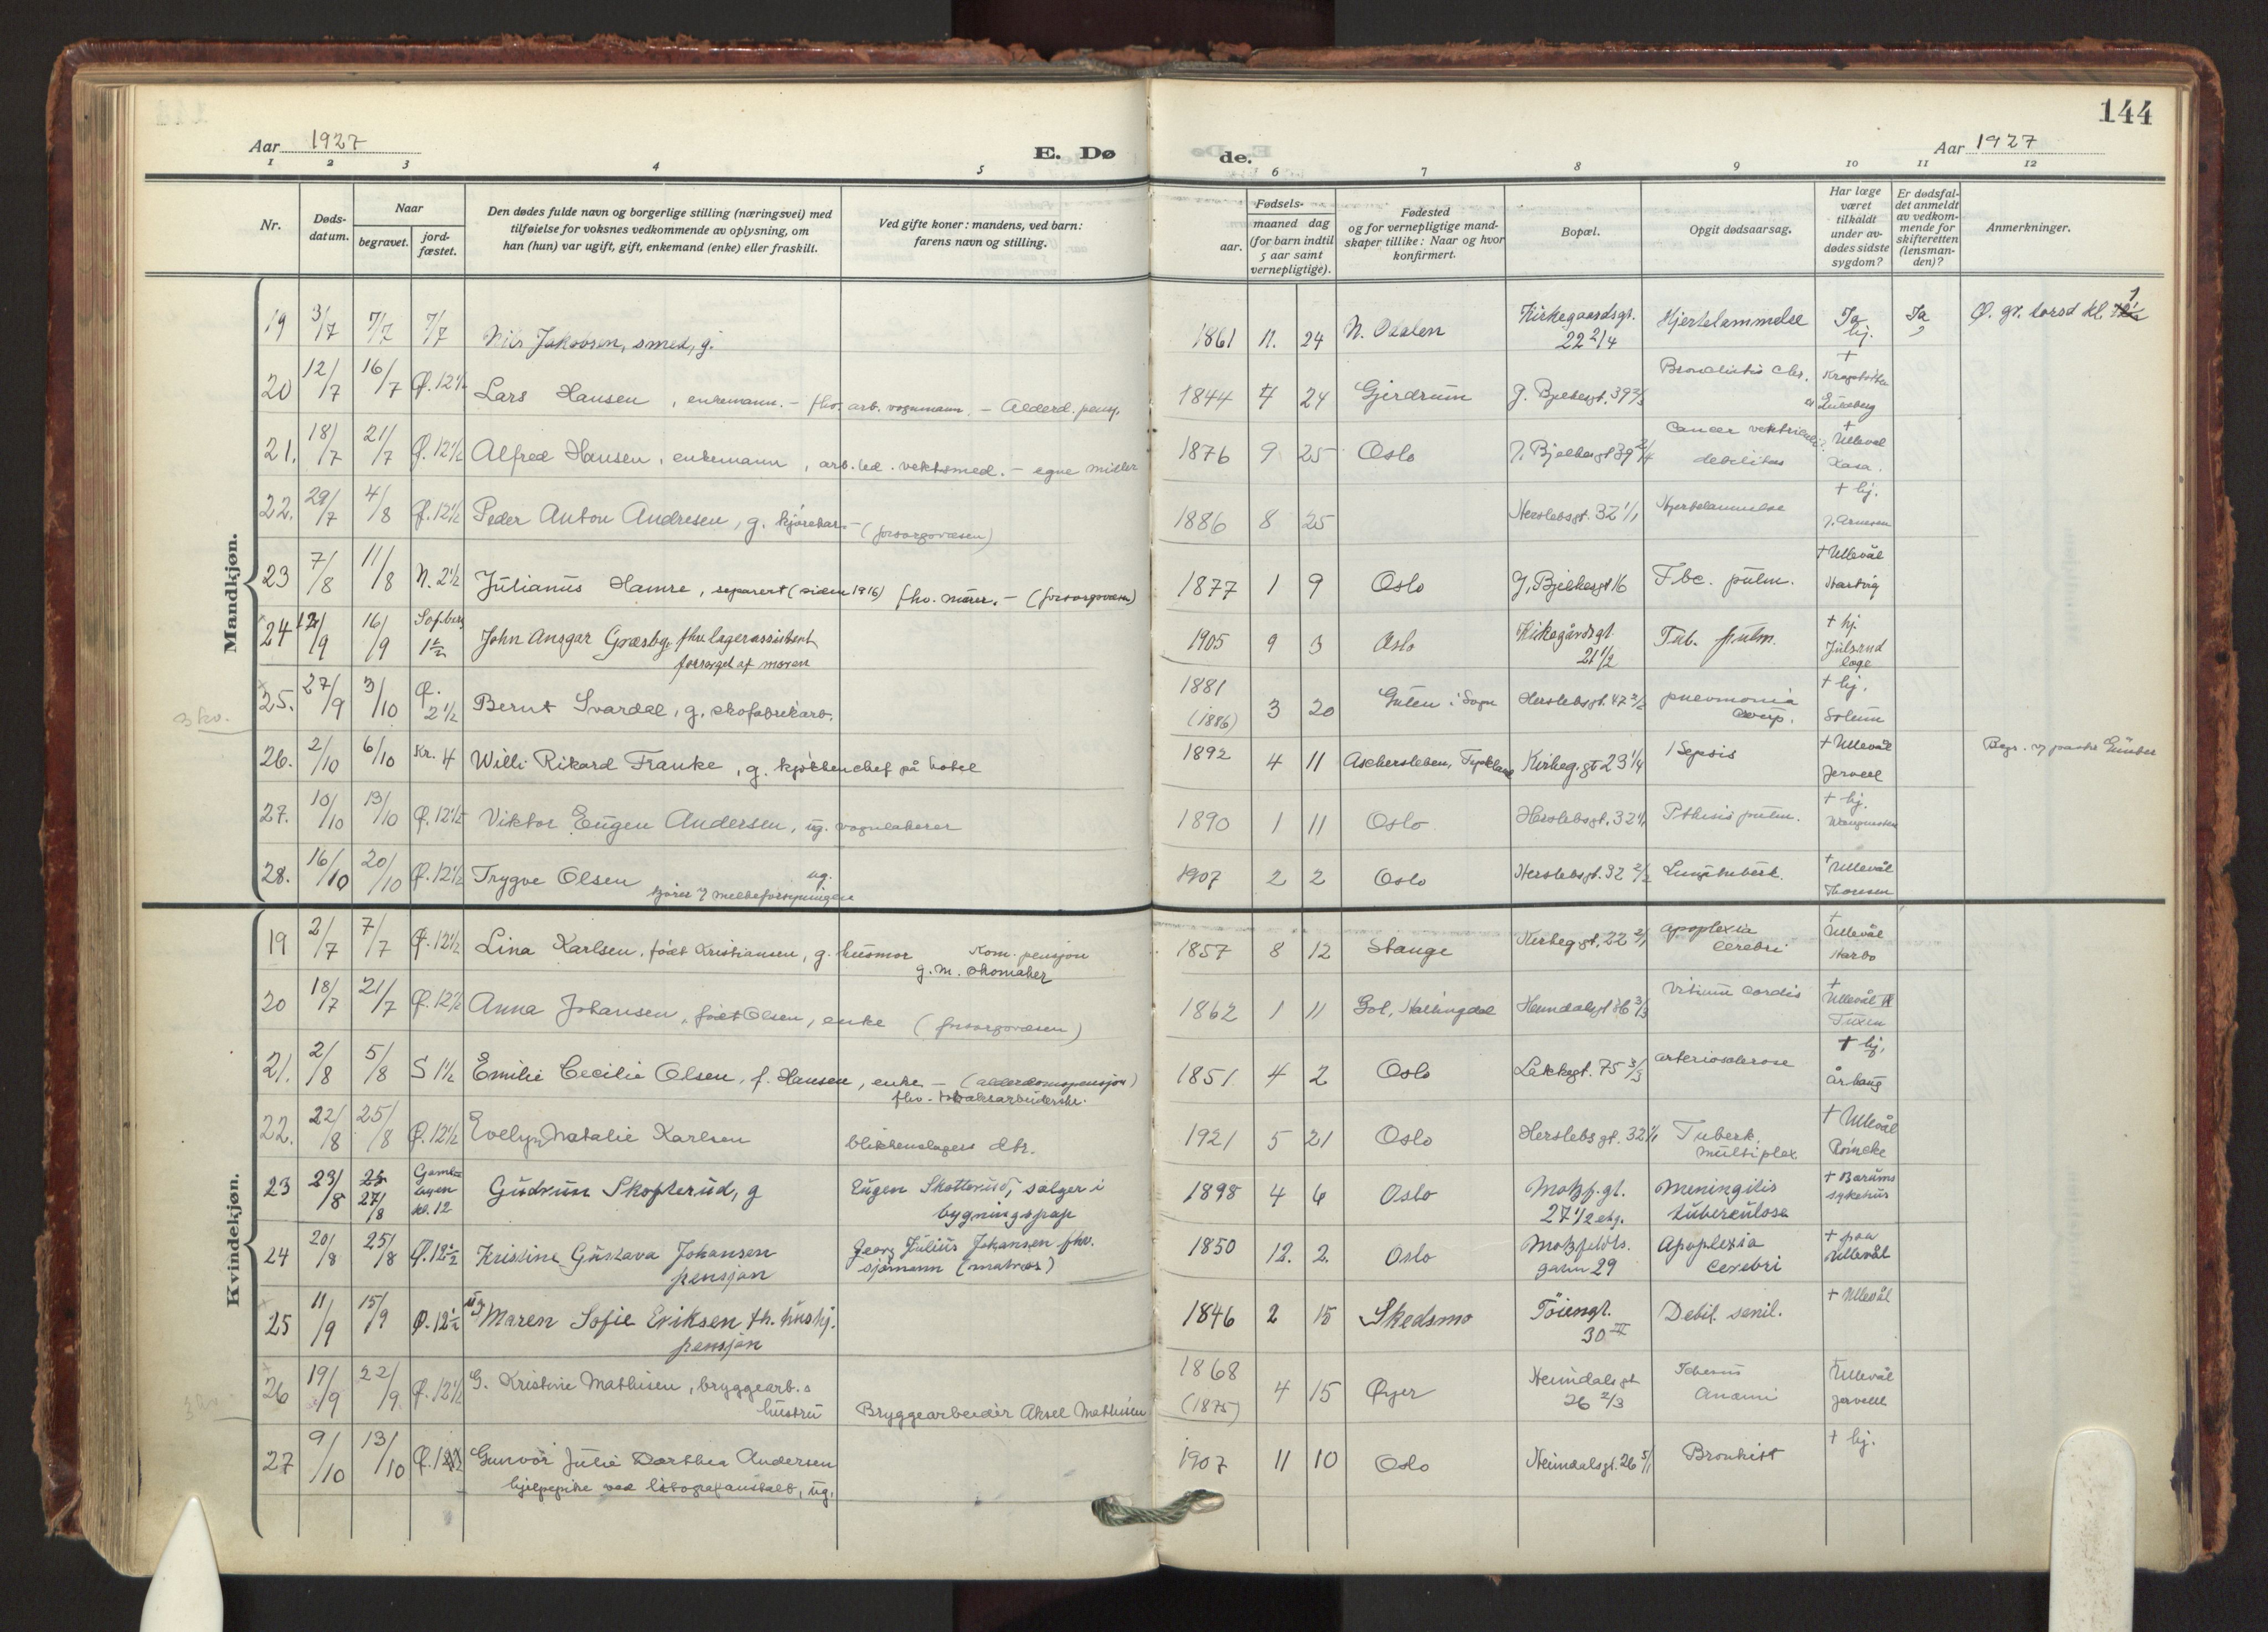 144
Aar 1927
E. Dø
de.
Aar 1927
1 2 3 4 5 6 7 8 9 10 11 12
Nr.
Døds-
datum.
Naar
begravet.
jord-
fæstet.
Den dødes fulde navn og borgerlige stilling (næringsvei) med
tilføielse for voksnes vedkommende av oplysning, om
han (hun) var ugift, gift, enkemand (enke) eller fraskilt.
Ved gifte koner: mandens, ved barn:
farens navn og stilling.
Fødsels-
aar.
maaned dag
(for barn indtil
5 aar samt
vernepligtige).
Fødested
og for vernepligtige mand-
skaper tillike: Naar og hvor
konfirmert.
Bopæl.
Opgit dødsaarsag.
Har læge
været
tilkaldt
under av-
dødes sidste
sygdom?
Er dødsfal-
det anmeldt
av vedkom-
mende for
skifteretten
(lensman-
den)?
Anmerkninger.
Mandkjøn.
19 3/7 7/7 7/7 Nils Jakobsen, smed, g. 1861 11. 24 N. Odalen Kirkegaardsgt. 22 2/4 Hjertelammelse Ja hj. Ja Ø. gr. torsd kl. 1
20 12/7 16/7 Ø. 12 1/2 Lars Hansen, enkemann. – fhv. arb. vognmann. – Alderd. pensj. 1844 7 24 Gjerdrum J. Bjelkesgt. 39 2/3 Bronchitis chr. †
21. 18/7 21/7 Ø. 12 1/2 Alfred Hansen, enkemann, arb. led. vektsmed. – egne midler 1876 9 25 Oslo J. Bjelkesgt 39 2/4 Cancer ventriculi debilitas † Ullevål
22. 29/7 4/8 Ø. 12 1/2 Peder Anton Andresen, g. kjørekar – (forsorgsvesen) 1886 8 25 Herslebsgt. 32 1/1 Hjertelammelse † hj. J. Arnesen
23 7/8 11/8 N. 2 1/2 Julianus Hamre, separert (siden 1916) fhv. murer. – (forsorgsvesen) 1877 1 9 Oslo J. Bjelkesgt 16 Tbc. pulm. † Ullevål Hartvig
24 12/9 16/9 Sofbrg 1 1/2 John Ansgar Græsbg. fhv lagerassistent
forsørget af moren 1905 9 3 Oslo Kirkegårdsgt. 21 1/2 Tub. pulm. † hj. Julsrud læge
3 kv.
25. 27/9 3/10 Ø. 2 1/2 Bernt Svardal, g, skofabrikarb. 1881 (1886) 3 20 Gulen i Sogn Herslebsgt. 47 2/2 pneumonia croup. † hj. Solum
26. 2/10 6/10 Kr. 4 Willi Rikard Franke, g. kjøkkenchef på hotel 1892 4 11 Aschersleben, Tyskland Kirkeg.gt 23 1/4 Sepsis † Ullevål Jervell Begr. v/ pastor Günther
27. 10/10 13/10 Ø. 12 1/2 Viktor Eugen Andersen, ug. vognlakerer 1890 1 11 Oslo Herslebsgt. 32 1/1 Pthisis pulm. † hj.
28. 16/10 20/10 Ø. 12 1/2 Trygve Olsen ug.
kjører v melkeforsyningen 1907 2 2 Oslo Herslebsgt. 32 2/2 Lungetuberk. † Ullevål Thoresen
Kvindekjøn.
19 2/7 7/7 Ø. 12 1/2 Lina Karlsen, født Kristiansen, g. husmor Kom. pensjon
g. m. skomaker 1857 8 12 Stange Kirkeg gt. 22 2/1 Apoplexia cerebri † Ullevål Harbo
20 18/7 21/7 Ø. 12 1/2 Anna Johansen, født Olsen, enke (forsorgsvesen) 1862 1 11 Gol, Hallingdal Heimdalsgt 26 3/3 Vitium cordis † Ullevål Tuxen
21. 2/8 5/8 S 1 1/2 Emilie Cecilie Olsen, f. Hansen, enke – (alderdomspensjon)
fhv. tobaksarbeiderske. 1851 4 2 Oslo Lakkegt. 75 3/3 arteriosclerose † hj. Århaug
22. 22/8 25/8 Ø. 12 1/2 Evelyn Natalie Karlsen blikkenslagers dtr. 1921 5 21 Oslo Herslebsgt. 32 1/1 Tuberk. multiplex † Ullevål Römcke
23 23/8 27/8 Gamlebyen kl. 12 Gudrun Skotterud, g Eugen Skotterud, selger i
bygningspap 1898 4 6 Oslo Motzf.gt. 27 1/2 etg. Meningitis tuberculosa † Bærums sykehus
24 20/8 25/8 Ø. 12 1/2 Kristine Gustava Johansen
pensjon Georg Julius Johansen fhv.
sjømann (matros) 1850 12. 2. Oslo Motzfeldts. gaten 29 Apoplexia cerebri † paa Ullevål
25 11/9 15/9 Ø. 12 1/2 ug Maren Sofie Eriksen fh. hushj.
pensjon 1846 2 15 Skedsmo Töiengt. 30 II Debil. senil. † Ullevål
26 19/9 22/9 Ø. 12 1/2 G. Kristine Mathisen, bryggearb.s
hustru Bryggearbeider Aksel Mathisen 1868 (1875) 4 15 Øyer Heimdalsgt 26 2/3 Anæmi † Ullevål Jervell
27 9/10 13/10 Ø. Gunvor Julie Dorthea Andersen
hjelpepike ved litografanstalt, ug. 1907 11 10 Oslo Heimdalsgt. 26 5/1 Bronkist † hj.